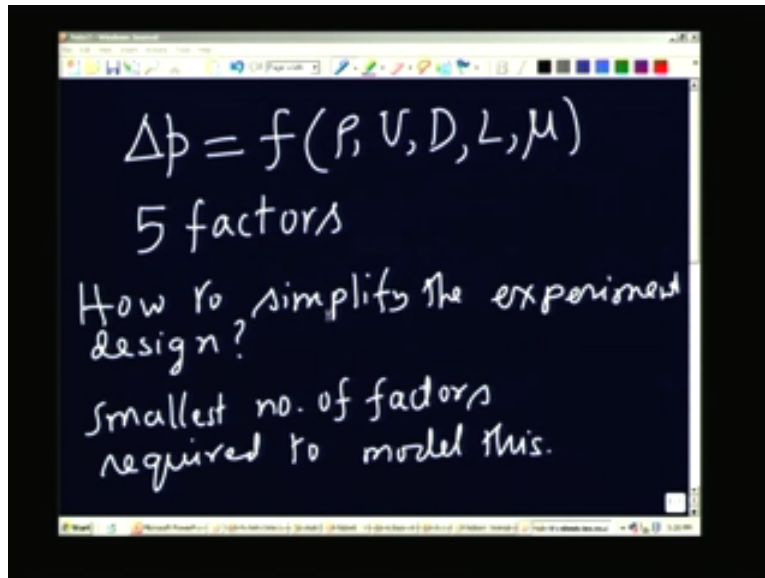 Δp = f(ρ, V, D, L, μ)
5 factors
How to simplify the experiment
design?
Smallest no. of factors
required to model this.